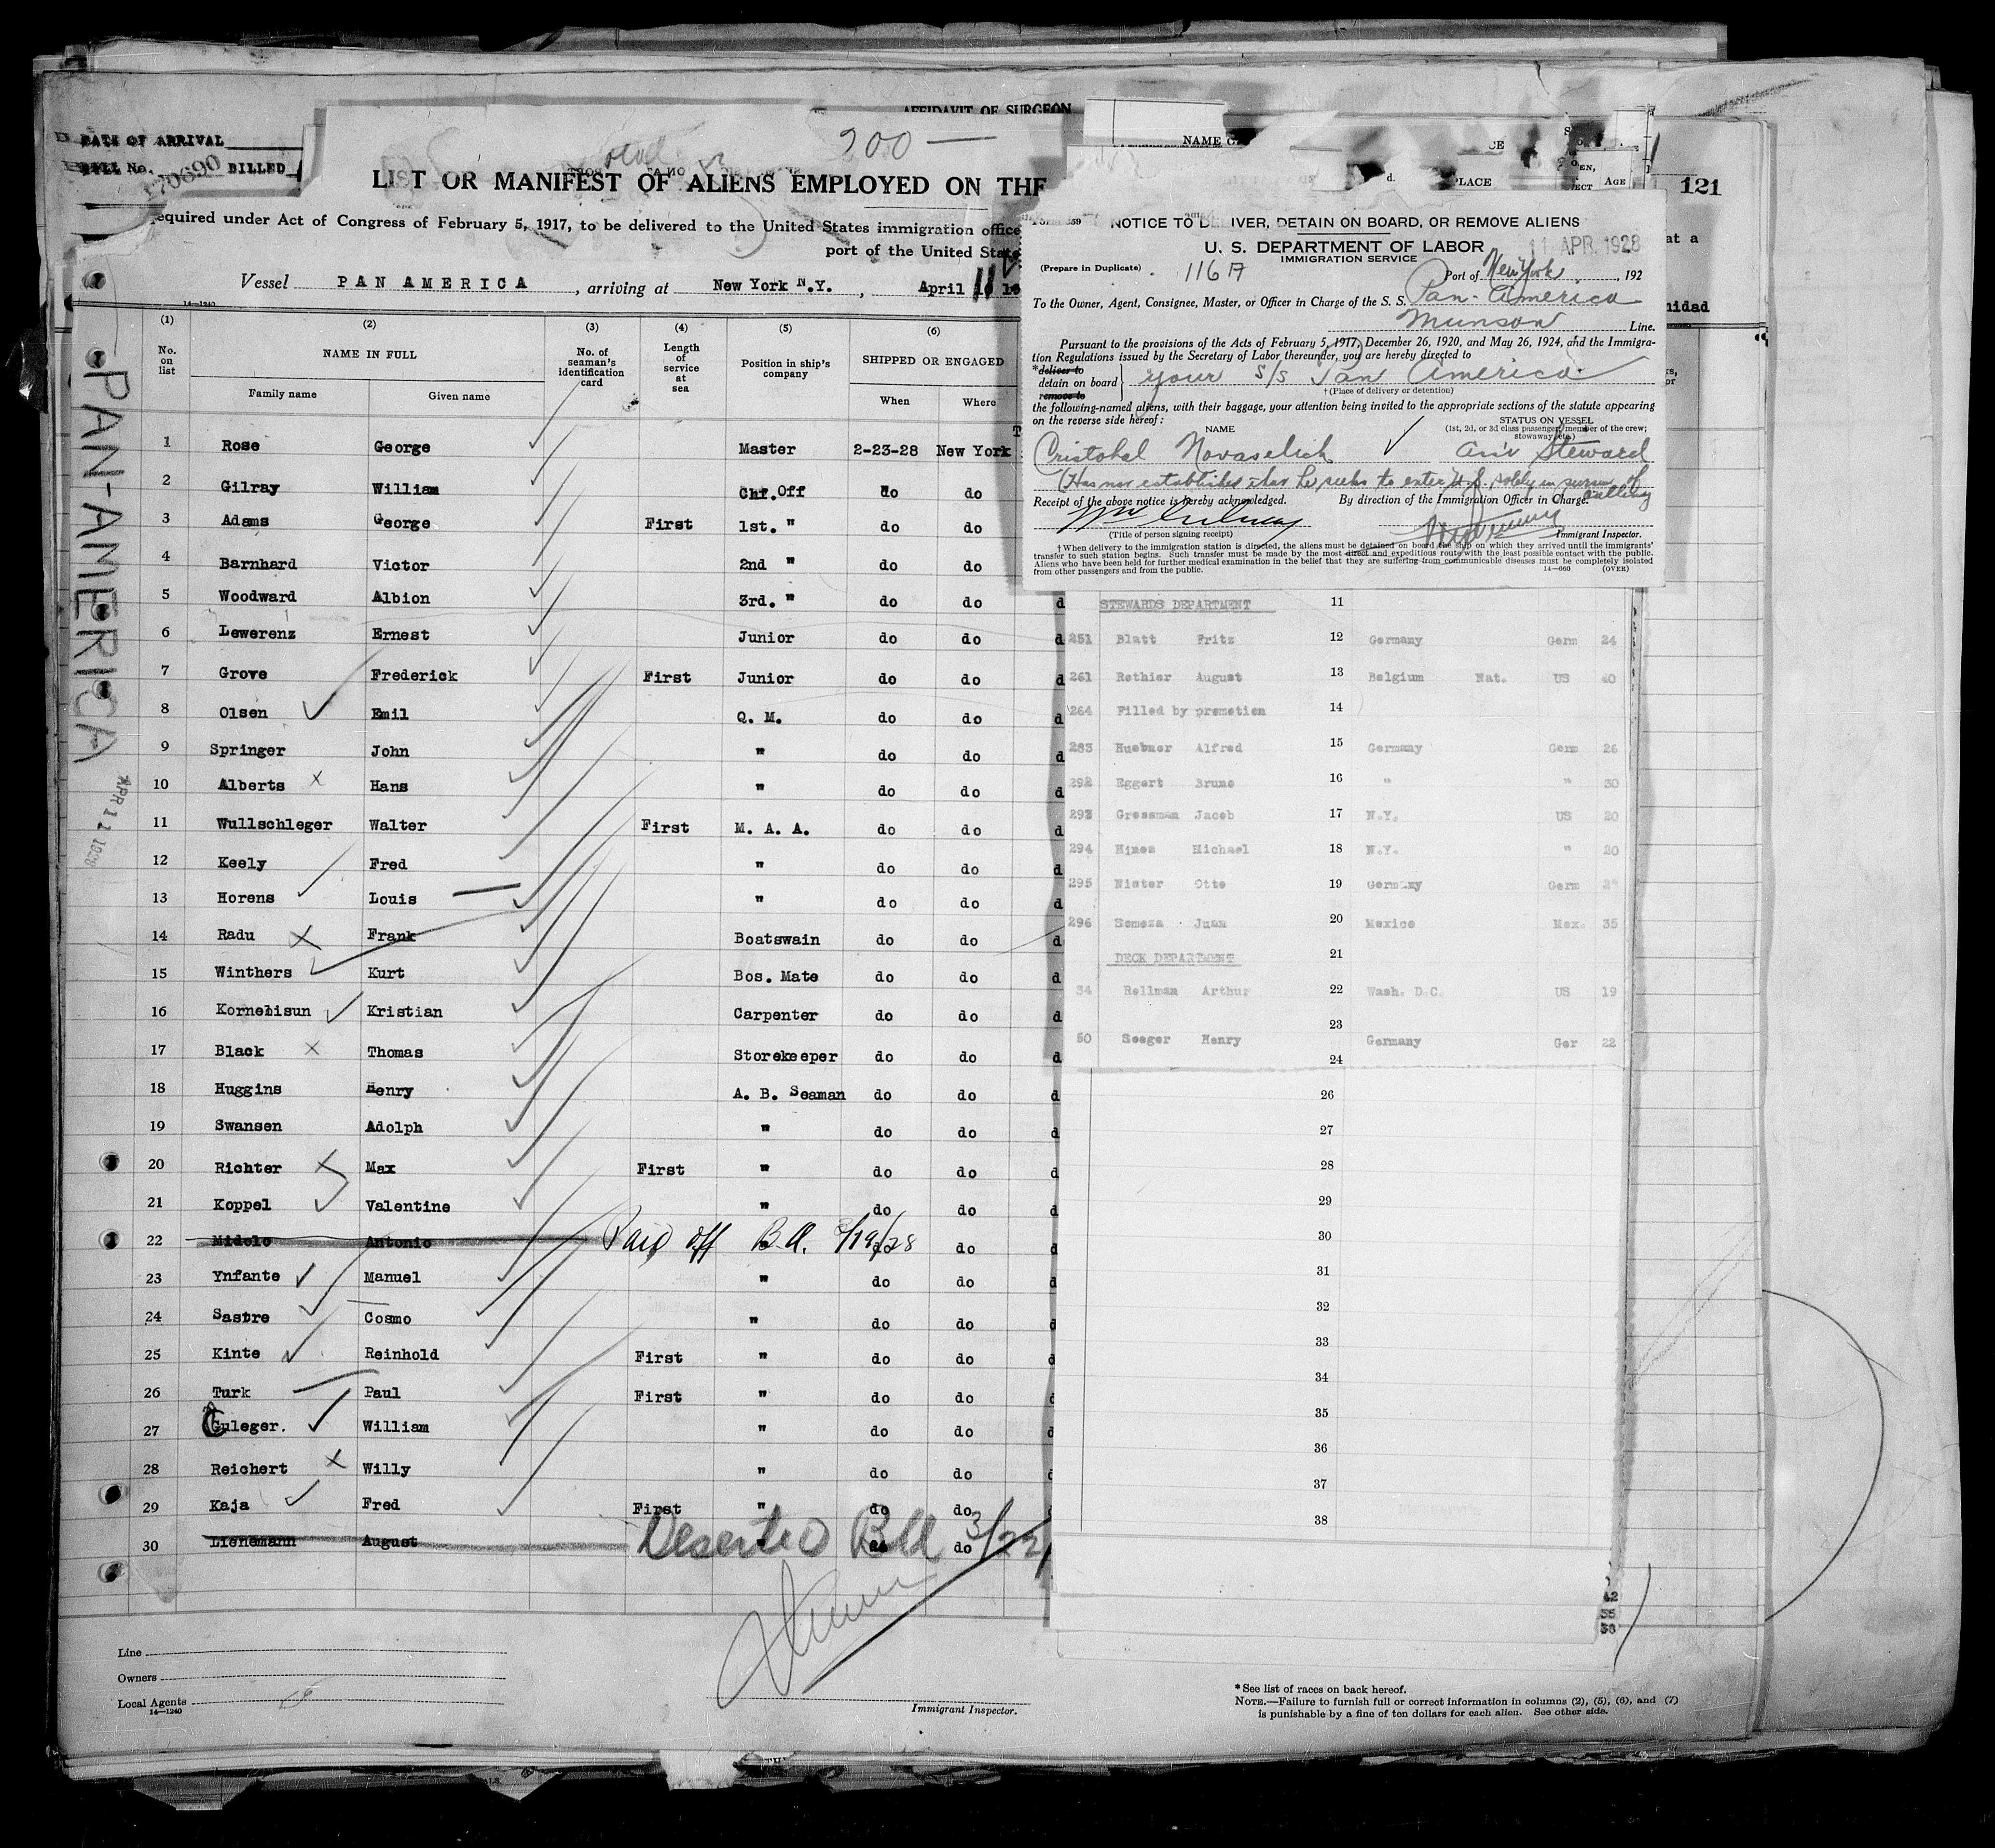 AFFIDAVIT OF SURGEON
DATE OF ARRIVAL
BILL No. 170690 BILLED
200 —
LIST OR MANIFEST OF ALIENS EMPLOYED ON THE
equired under Act of Congress of February 5, 1917, to be delivered to the United States immigration office
port of the United State
Vessel PAN AMERICA, arriving at New York N.Y., April 11
14—1240
(1) (2) (3) (4) (5) (6)
No. on list
NAME IN FULL
Family name Given name
No. of seaman's identification card
Length of service at sea
Position in ship's company
SHIPPED OR ENGAGED
When Where
1 Rose George Master 2-23-28 New York
2 Gilray William Chf. Off do do
3 Adams George First 1st. " do do
4 Barnhard Victor 2nd " do do
5 Woodward Albion 3rd. " do do d
6 Lewerenz Ernest Junior do do d
7 Grove Frederick First Junior do do d
8 Olsen Emil Q. M. do do d
9 Springer John " do do d
10 Alberts Hans " do do d
11 Wullschleger Walter First M. A. A. do do d
12 Keely Fred " do do d
13 Horens Louis " do do d
14 Radu Frank Boatswain do do d
15 Winthers Kurt Bos. Mate do do d
16 Kornelisun Kristian Carpenter do do d
17 Black Thomas Storekeeper do do d
18 Huggins Henry A. B. Seaman do do d
19 Swansen Adolph " do do d
20 Richter Max First " do do d
21 Koppel Valentine " do do d
22 Midolo Antonio Paid off B.A. 3/19/28 do do d
23 Ynfante Manuel " do do d
24 Sastre Cosmo " do do d
25 Kinte Reinhold First " do do d
26 Turk Paul First " do do d
27 Guleger. William " do do d
28 Reichert Willy " do do d
29 Kaja Fred First " do do
30 Lienemann August Deserted BA 3/22/ do
Line
Owners
Local Agents
14—1240
Immigrant Inspector.
*See list of races on back hereof.
NOTE.—Failure to furnish full or correct information in columns (2), (5), (6), and (7)
is punishable by a fine of ten dollars for each alien. See other side.
PAN-AMERICA
APR 11 1928
NAME
PLACE
AGE
121
at a
nidad
NOTICE TO DELIVER, DETAIN ON BOARD, OR REMOVE ALIENS
U. S. DEPARTMENT OF LABOR
11 APR. 1928
IMMIGRATION SERVICE
(Prepare in Duplicate) 116 A Port of New York, 192
To the Owner, Agent, Consignee, Master, or Officer in Charge of the S. S. Pan-America
Munson Line.
Pursuant to the provisions of the Acts of February 5, 1917, December 26, 1920, and May 26, 1924, and the Immigra-
tion Regulations issued by the Secretary of Labor thereunder, you are hereby directed to
*deliver to
detain on board
remove to
your s/s Pan America
†(Place of delivery or detention)
the following-named aliens, with their baggage, your attention being invited to the appropriate sections of the statute appearing
on the reverse side hereof:
NAME
STATUS ON VESSEL
(1st, 2d, or 3d class passenger, member of the crew;
stowaway, etc.)
Cristobal Novaselich Ass't Steward
(Has not established that he seeks to enter U.S. solely in pursuit of calling
Receipt of the above notice is hereby acknowledged. By direction of the Immigration Officer in Charge.
(Title of person signing receipt)
Immigrant Inspector.
†When delivery to the immigration station is directed, the aliens must be detained on board the ship on which they arrived until the immigrants'
transfer to such station begins. Such transfer must be made by the most direct and expeditious route with the least possible contact with the public.
Aliens who have been held for further medical examination in the belief that they are suffering from communicable diseases must be completely isolated
from other passengers and from the public.
14—660 (OVER)
STEWARDS DEPARTMENT 11
251 Blatt Fritz 12 Germany Germ 24
261 Rethier August 13 Belgium Nat. US 40
264 Filled by premetien 14
283 Huebner Alfred 15 Germany Germ 26
292 Eggert Brune 16 " " 30
293 Gressman Jaceb 17 N.Y. US 20
294 Hines Michael 18 N.Y. " 20
295 Nister Otte 19 Germany Germ
296 Semeza Juan 20 Mexice Mex. 35
DECK DEPARTMENT 21
34 Rellman Arthur 22 Wash. D.C. US 19
23
50 Seeger Henry Germany Ger 22
24
26
27
28
29
30
31
32
33
34
35
36
37
38